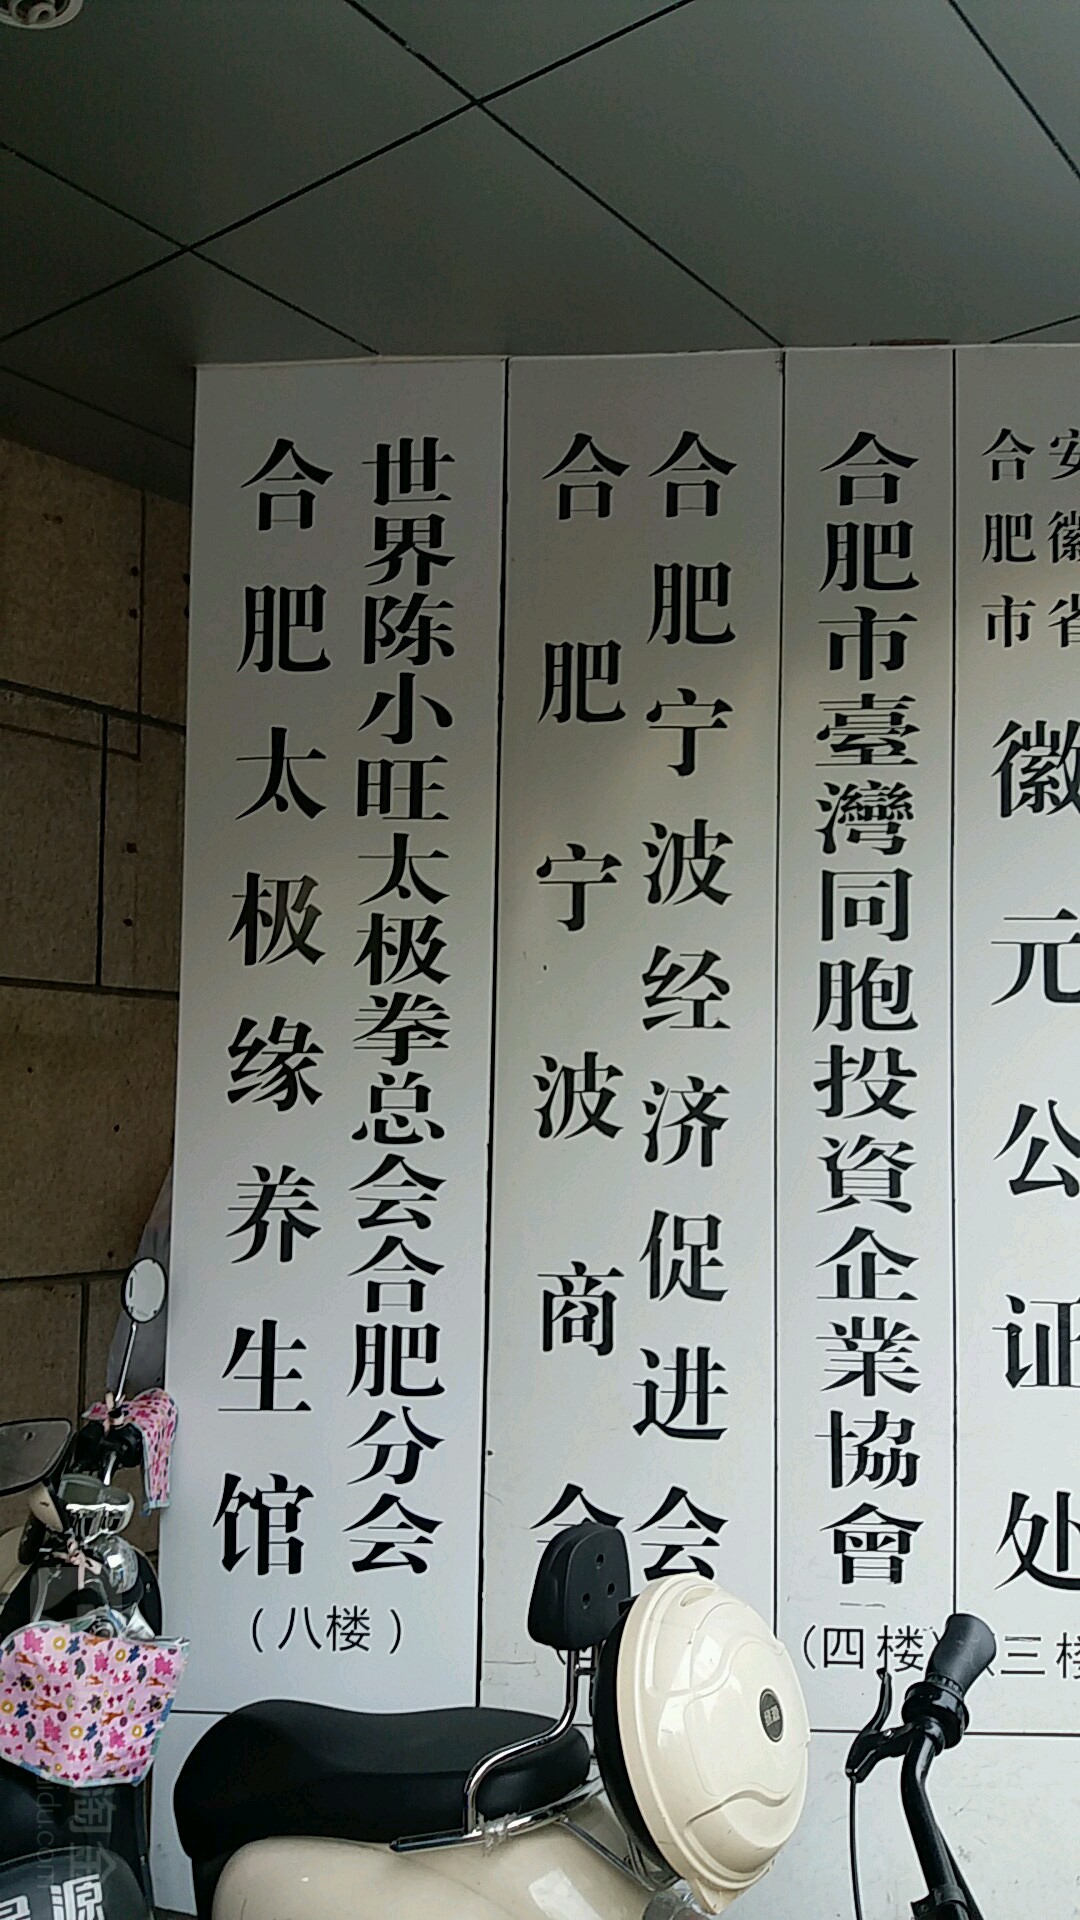 世界陈小旺太极拳总会合肥分会
合肥太极缘养生馆
(八楼)
合肥宁波经济促进会
合肥宁波商会
合肥市臺灣同胞投資企業協會
(四楼)
安徽省
合肥市
徽元公证处
三楼
源